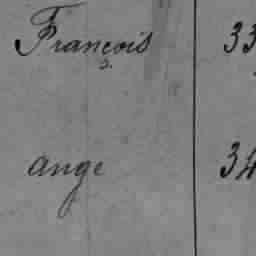 François 33
ange 34